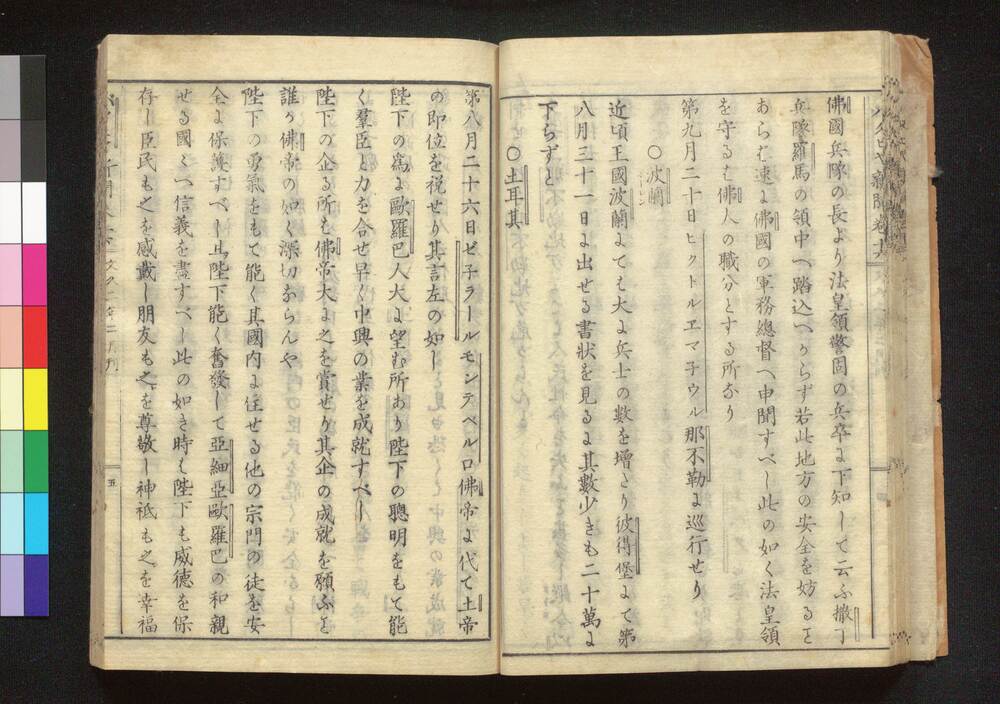 佛國兵隊の長より法皇領警固の兵卒に下知して云ふ撒丁
兵隊羅馬の領中へ踏込べからず若此地方の安全を妨るこ
あらば速に佛國の軍務總督へ申聞すべし此の如く法皇領
を守るは佛人の職分とする所なり
第九月二十日ヒクトルエマ子ウル那不勒に巡行せり
○波蘭
近頃王國波蘭にても大に兵士の數を增たり彼得堡にて第
八月三十一日に出せる書狀を見るに其數少きも二十萬に
下らずと
○土耳其
第八月二十六日ゼ子ラールモンテベルロ佛帝に代て土帝
の即位を祝せり其言左の如し
陛下の爲に歐羅巴人大に望む所あり陛下の聰明をもて能
く羣臣と力を合せ早く中興の業を成就すべし
陛下の企る所は佛帝大に之を賞せり其企の成就を願ふこ
誰か佛帝の如く深切ならんや
陛下の勇氣をもて能く其國內に住せる他の宗門の徒を安
全に保護すべし且陛下能く奮發して亞細亞歐羅巴の和親
せる國々へ信義を盡すべし此の如き時は陛下も威德を保
存し臣民も之を感戴し朋友も之を尊敬し神祇も之を幸福
五